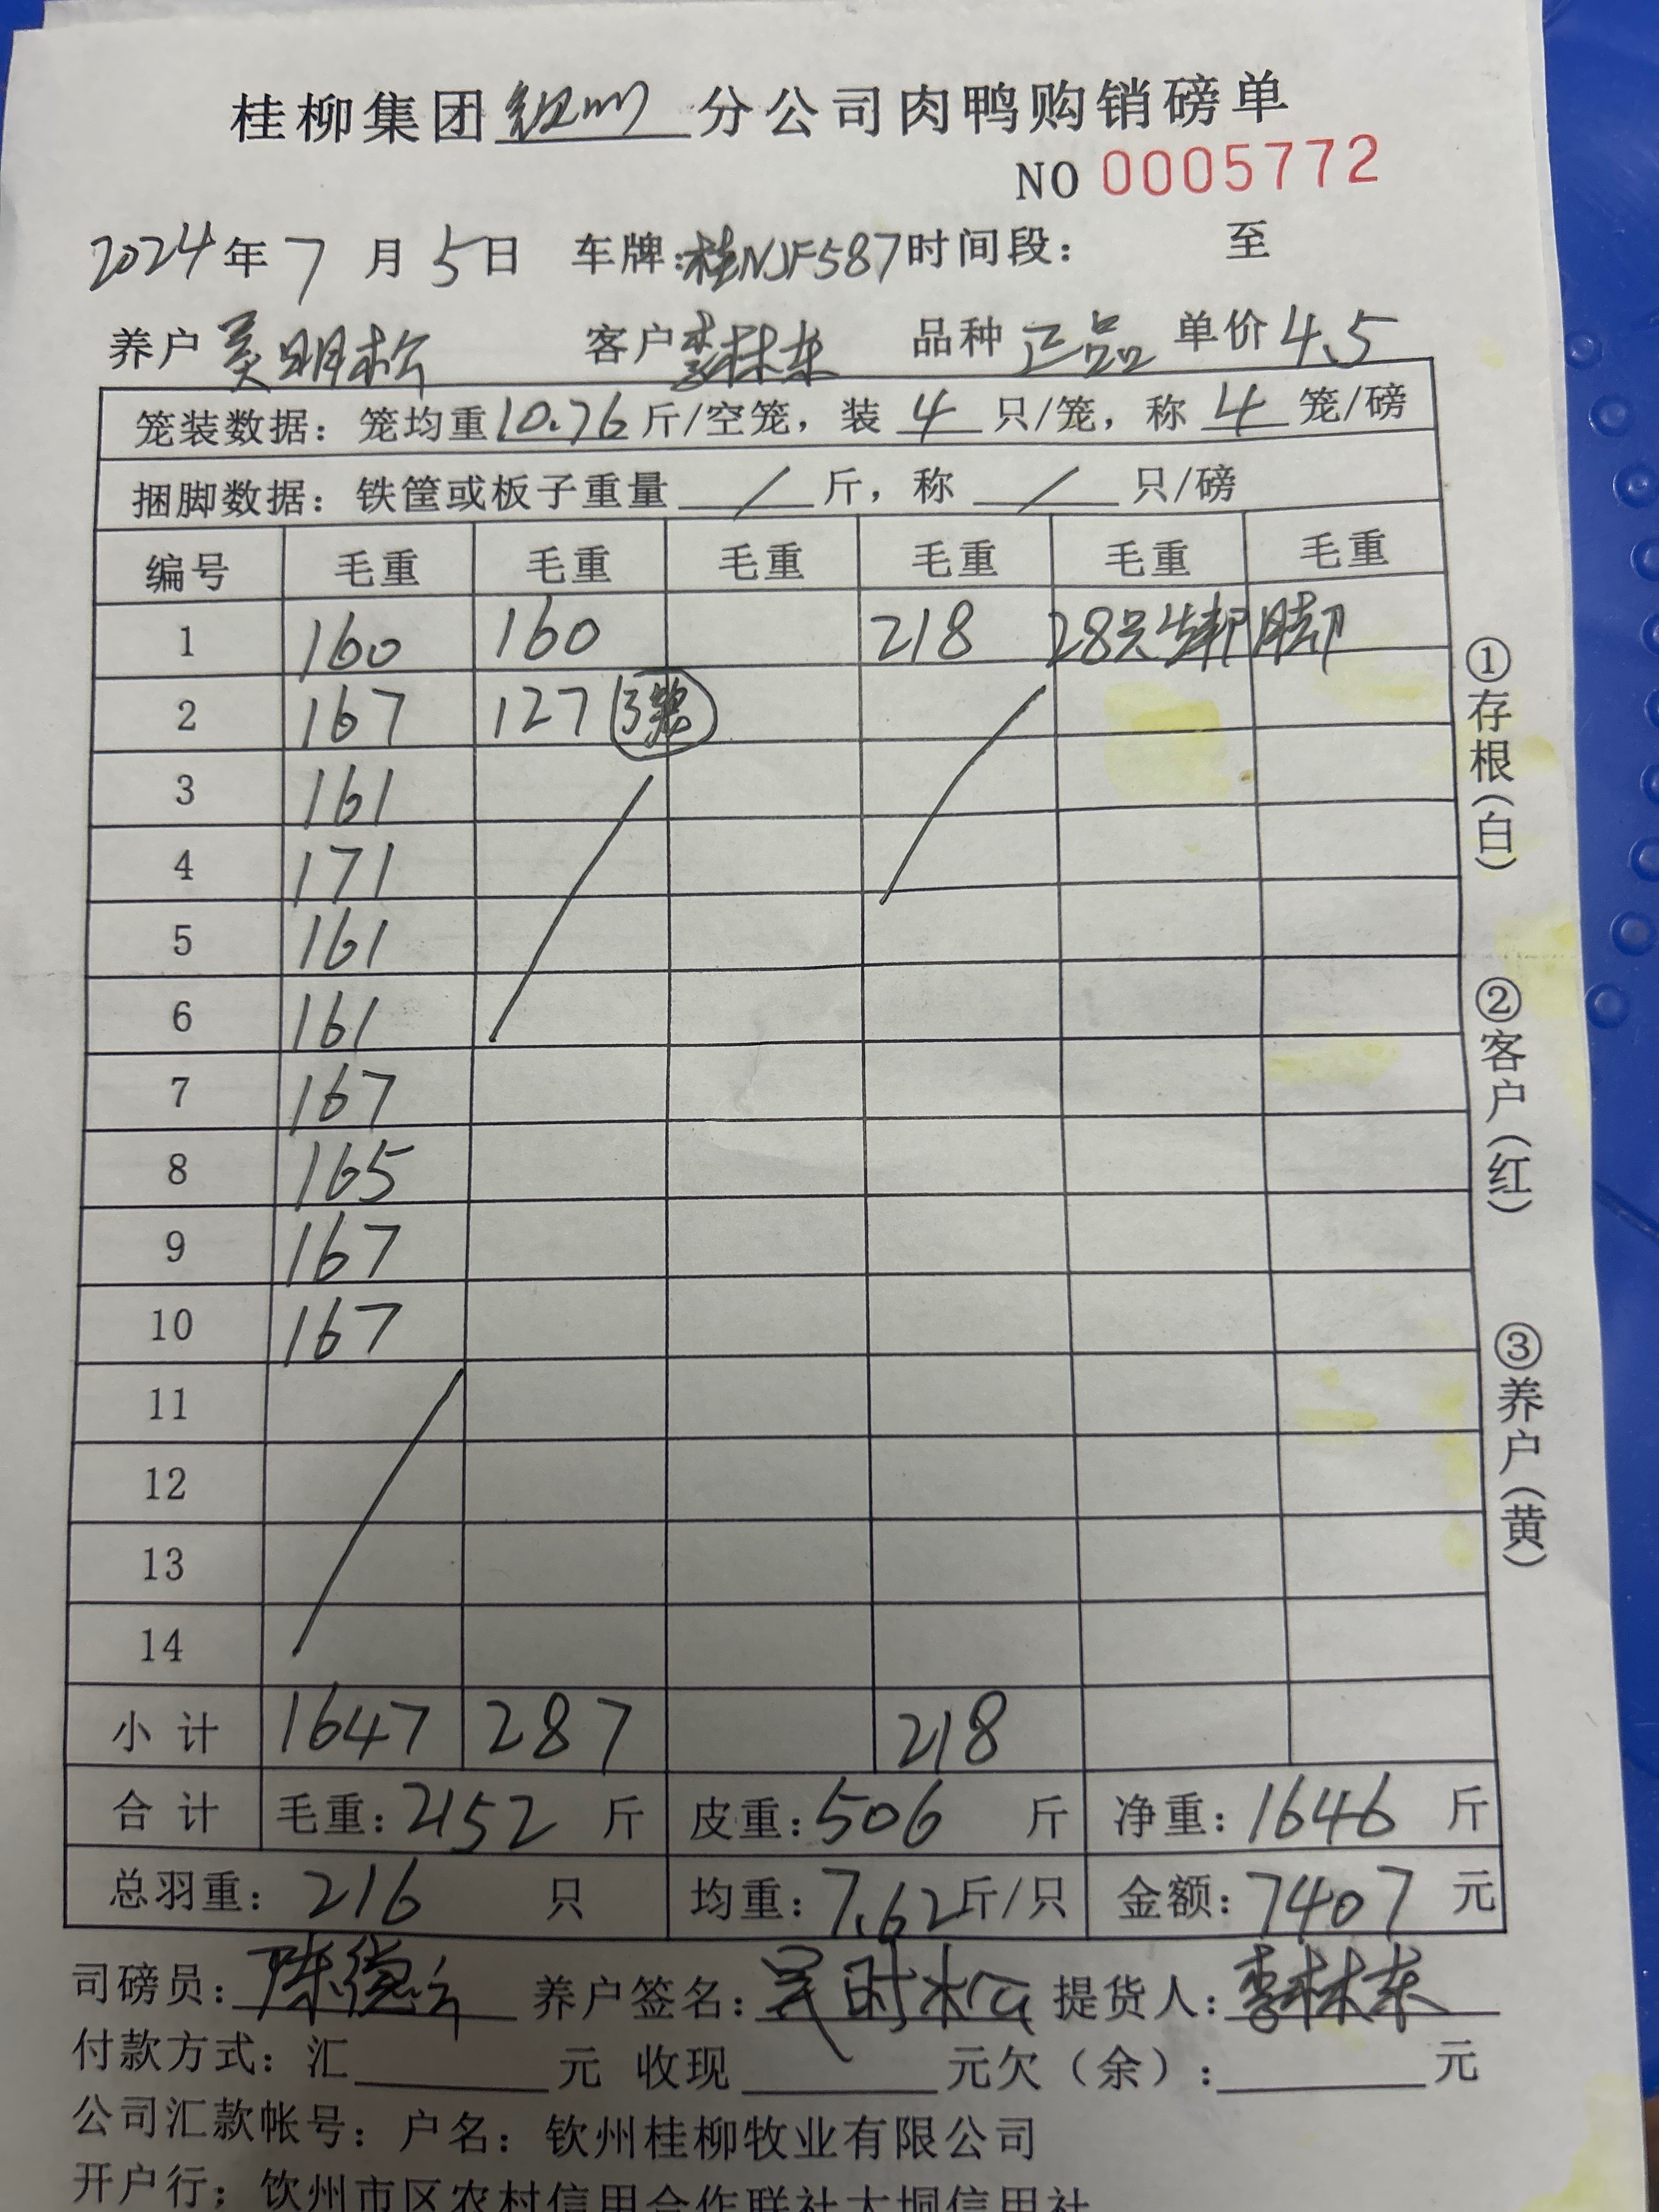 桂柳集团钦州分公司肉鸭购销磅单
NO 0005772
2024年7月5日 车牌:桂NJF587时间段: 至
养户 吴明松 客户李林东 品种 正品 单价4.5
笼装数据: 笼均重10.76斤/空笼, 装 4 只/笼, 称 4 笼/磅
捆脚数据: 铁筐或板子重量 / 斤, 称 / 只/磅
编号 毛重 毛重 毛重 毛重 毛重 毛重
1 160 160 218 28只绑脚
2 167 127 (3笼)
3 161
4 171
5 161
6 161
7 167
8 165
9 167
10 167
11
12
13
14
小计 1647 287 218
合计 毛重:2152 斤 皮重:506 斤 净重:1646 斤
总羽重: 216 只 均重:7.62斤/只 金额:7407 元
司磅员:陈德 养户签名:吴明松 提货人:李林东
付款方式: 汇 元 收现 元欠(余): 元
公司汇款帐号: 户名: 钦州桂柳牧业有限公司
开户行: 钦州市区农村信用合作联社大垌信用社
①存根(白)
②客户(红)
③养户(黄)